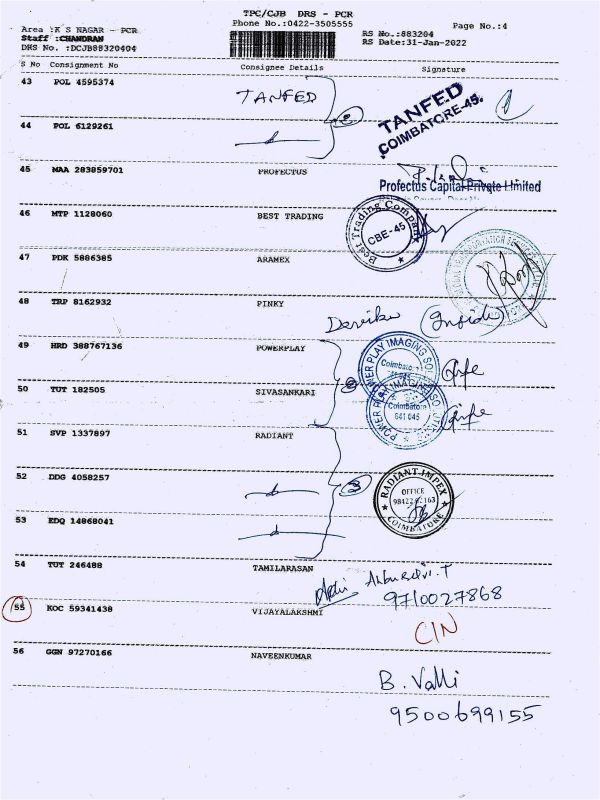 TPC/CJB DRS - PCR
Phone No.:0422-3505555
Page No.:4
Area :K S NAGAR - PCR
RS No.:883204
Staff :CHANDRAN
RS Date:31-Jan-2022
DRS No. :DCJB88320404
S No Consignment No Consignee Details Signature
43 POL 4595374 TANFED
TANFED
COIMBATORE-45.
44 POL 6129261
2
45 MAA 283859701 PROFECTUS
Profectus Capital Private Limited
46 MTP 1128060 BEST TRADING
Best Trading Company
CBE-45
47 PDK 5886385 ARAMEX
48 TRP 8162932 PINKY
49 HRD 388767136 POWERPLAY
POWER PLAY IMAGING SOLUTIONS
Coimbatore
50 TUT 182505 SIVASANKARI
2
POWER PLAY IMAGING SOLUTIONS
Coimbatore
641 045
51 SVP 1337897 RADIANT
52 DDG 4058257
3
RADIANT IMPEX
OFFICE
COIMBATORE
53 EDQ 14868041
54 TUT 246488 TAMILARASAN
9710027868
55 KOC 59341438 VIJAYALAKSHMI
CIN
56 GGN 97270166 NAVEENKUMAR
B. Valli
9500699155